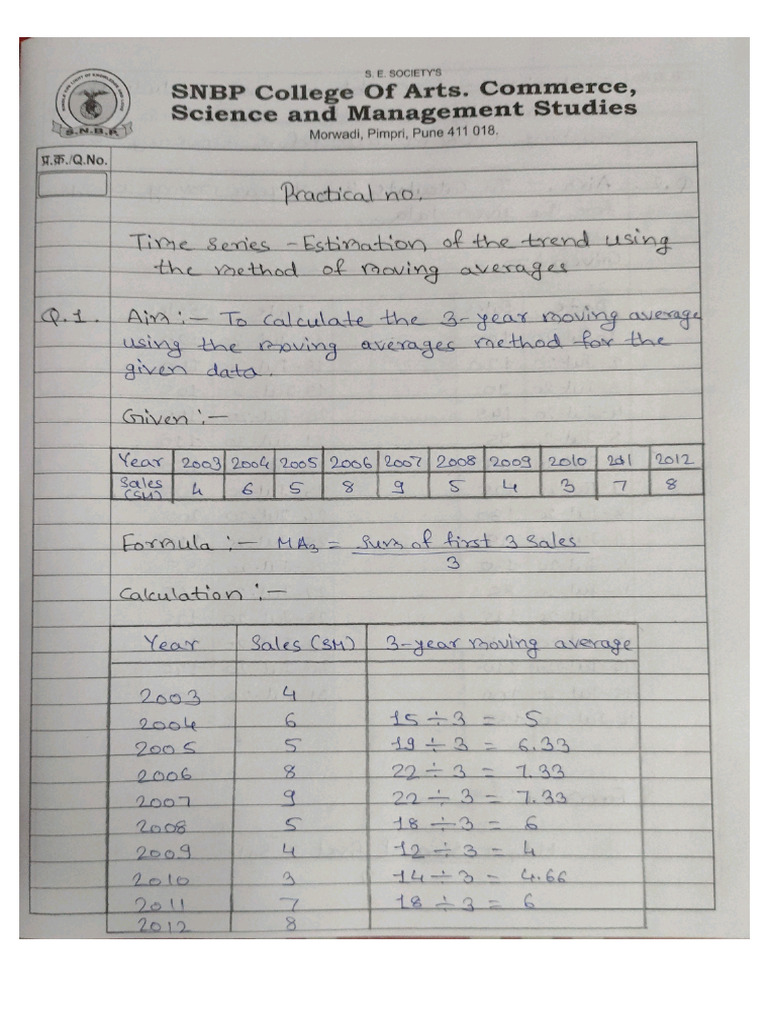 S. E. SOCIETY'S
SNBP College Of Arts. Commerce,
Science and Management Studies
Morwadi, Pimpri, Pune 411 018.
S.N.B.P.
प्र.क्र./Q.No.
Practical no.
Time series - Estimation of the trend using
the method of moving averages
Q.1. Aim :- To calculate the 3-year moving average
using the moving averages method for the
given data.
Given :-
Year 2003 2004 2005 2006 2007 2008 2009 2010 2011 2012
Sales ($M) 4 6 5 8 9 5 4 3 7 8
Formula :- MA3 = Sum of first 3 sales
3
Calculation :-
Year Sales ($M) 3-year moving average
2003 4
2004 6 15 ÷ 3 = 5
2005 5 19 ÷ 3 = 6.33
2006 8 22 ÷ 3 = 7.33
2007 9 22 ÷ 3 = 7.33
2008 5 18 ÷ 3 = 6
2009 4 12 ÷ 3 = 4
2010 3 14 ÷ 3 = 4.66
2011 7 18 ÷ 3 = 6
2012 8